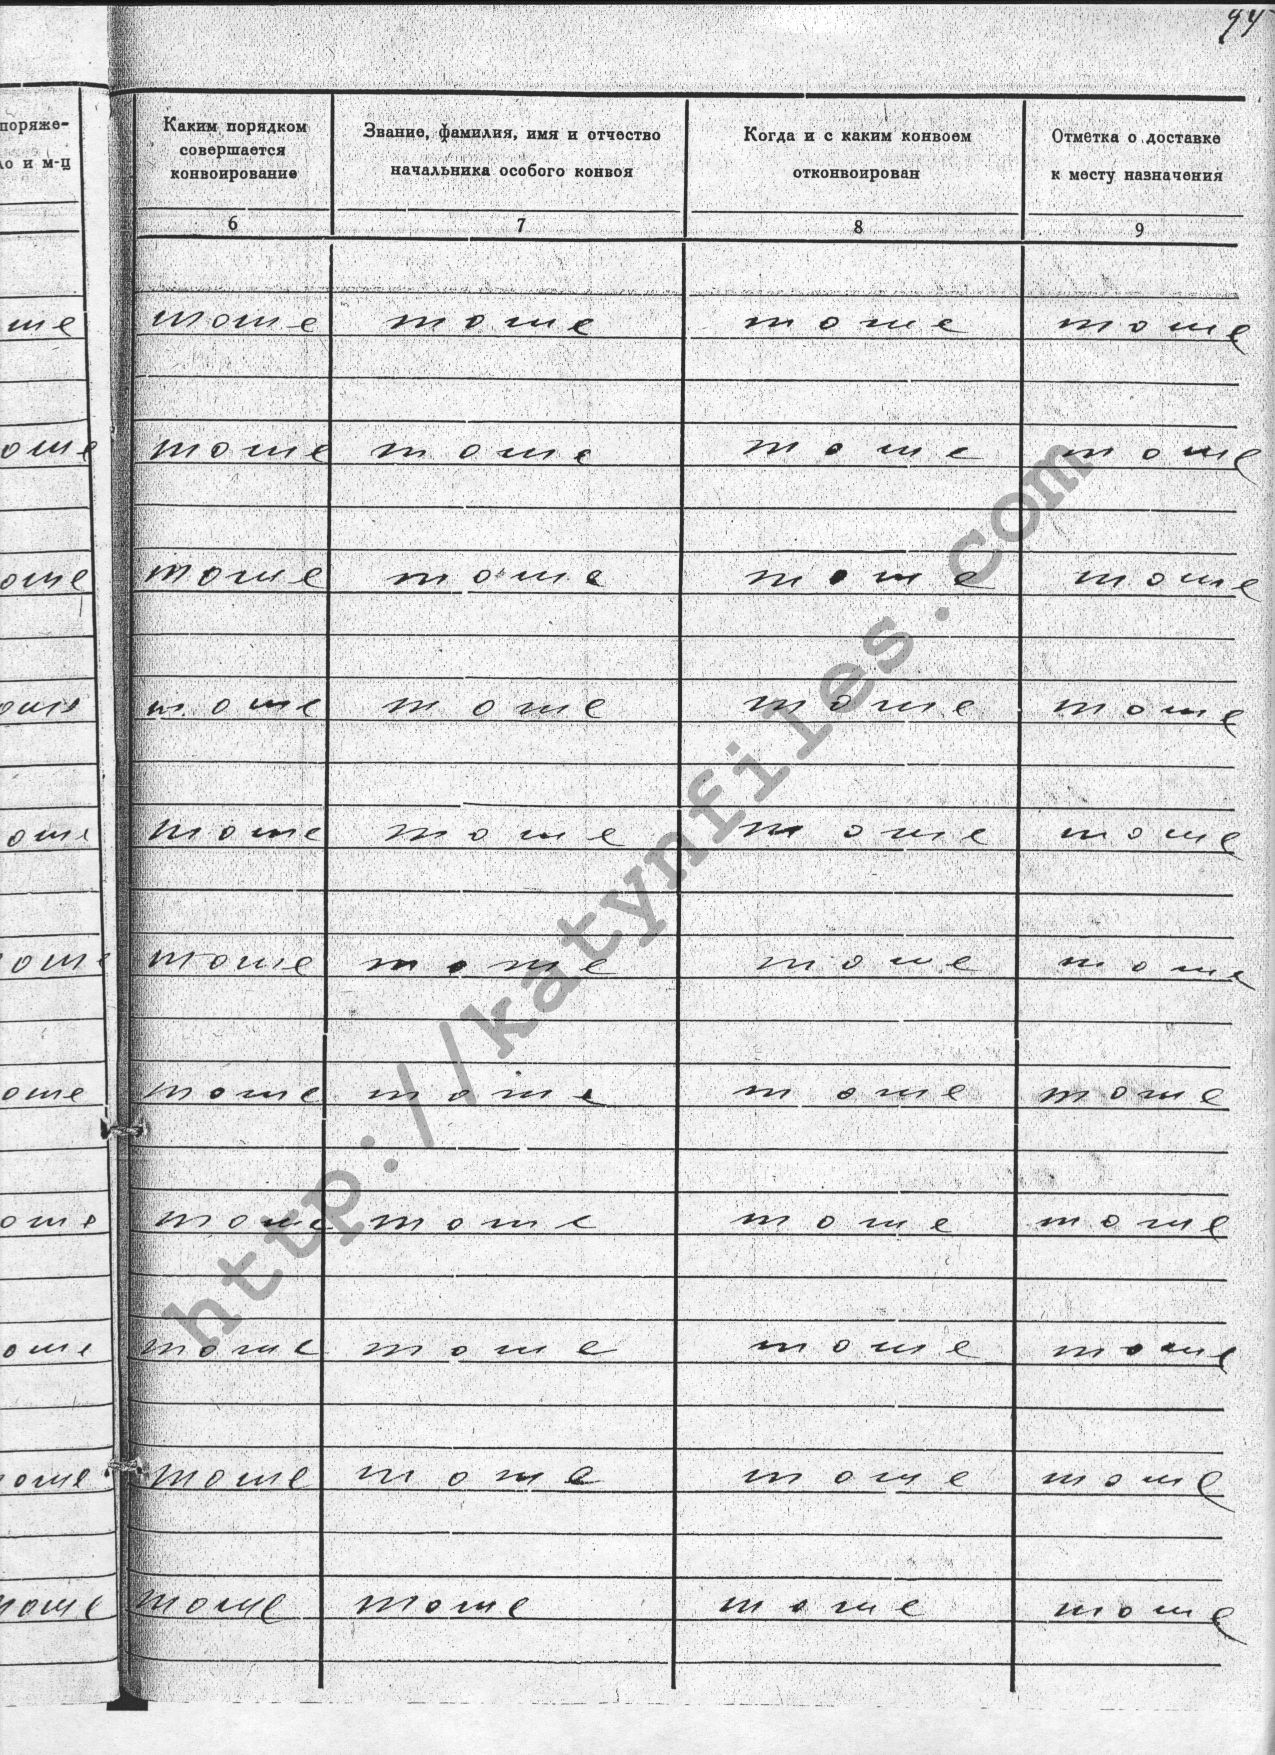 44
поряже-
ло и м-ц
Каким порядком
совершается
конвоирование
Звание, фамилия, имя и отчество
начальника особого конвоя
Когда и с каким конвоем
отконвоирован
Отметка о доставке
к месту назначения
6 7 8 9
ше тоше тоше тоше тоше
оше тоше тоше тоше тоше
оше тоше тоше тоше тоше
оше тоше тоше тоше тоше
оше тоше тоше тоше тоше
оше тоше тоше тоше тоше
оше тоше тоше тоше тоше
оше тоше тоше тоше тоше
оше тоше тоше тоше тоше
оше тоше тоше тоше тоше
тоше тоше тоше тоше тоше
http://katynfiles.com